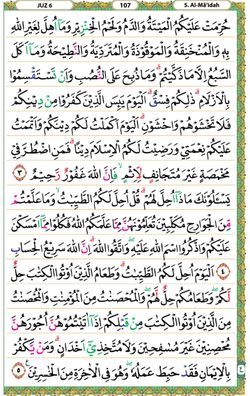 JUZ 6 107 S. Al-Mâ'idah
حُرِّمَتْ عَلَيْكُمُ الْمَيْتَةُ وَالدَّمُ وَلَحْمُ الْخِنْزِيْرِ وَمَآ اُهِلَّ لِغَيْرِ اللّٰهِ
بِهٖ وَالْمُنْخَنِقَةُ وَالْمَوْقُوْذَةُ وَالْمُتَرَدِّيَةُ وَالنَّطِيْحَةُ وَمَآ اَكَلَ
السَّبُعُ اِلَّا مَا ذَكَّيْتُمْ وَمَا ذُبِحَ عَلَى النُّصُبِ وَاَنْ تَسْتَقْسِمُوْا
بِالْاَزْلَامِ ذٰلِكُمْ فِسْقٌ اَلْيَوْمَ يَئِسَ الَّذِيْنَ كَفَرُوْا مِنْ دِيْنِكُمْ
فَلَا تَخْشَوْهُمْ وَاخْشَوْنِ اَلْيَوْمَ اَكْمَلْتُ لَكُمْ دِيْنَكُمْ وَاَتْمَمْتُ
عَلَيْكُمْ نِعْمَتِيْ وَرَضِيْتُ لَكُمُ الْاِسْلَامَ دِيْنًا فَمَنِ اضْطُرَّ فِيْ
مَخْمَصَةٍ غَيْرَ مُتَجَانِفٍ لِّاِثْمٍ فَاِنَّ اللّٰهَ غَفُوْرٌ رَّحِيْمٌ ٣
يَسْـَٔلُوْنَكَ مَاذَآ اُحِلَّ لَهُمْ قُلْ اُحِلَّ لَكُمُ الطَّيِّبٰتُ وَمَا عَلَّمْتُمْ
مِّنَ الْجَوَارِحِ مُكَلِّبِيْنَ تُعَلِّمُوْنَهُنَّ مِمَّا عَلَّمَكُمُ اللّٰهُ فَكُلُوْا مِمَّآ اَمْسَكْنَ
عَلَيْكُمْ وَاذْكُرُوا اسْمَ اللّٰهِ عَلَيْهِ وَاتَّقُوا اللّٰهَ اِنَّ اللّٰهَ سَرِيْعُ الْحِسَابِ
٤ اَلْيَوْمَ اُحِلَّ لَكُمُ الطَّيِّبٰتُ وَطَعَامُ الَّذِيْنَ اُوْتُوا الْكِتٰبَ حِلٌّ
لَّكُمْ وَطَعَامُكُمْ حِلٌّ لَّهُمْ وَالْمُحْصَنٰتُ مِنَ الْمُؤْمِنٰتِ وَالْمُحْصَنٰتُ
مِنَ الَّذِيْنَ اُوْتُوا الْكِتٰبَ مِنْ قَبْلِكُمْ اِذَآ اٰتَيْتُمُوْهُنَّ اُجُوْرَهُنَّ
مُحْصِنِيْنَ غَيْرَ مُسٰفِحِيْنَ وَلَا مُتَّخِذِيْٓ اَخْدَانٍ وَمَنْ يَّكْفُرْ
بِالْاِيْمَانِ فَقَدْ حَبِطَ عَمَلُهٗ وَهُوَ فِى الْاٰخِرَةِ مِنَ الْخٰسِرِيْنَ ٥